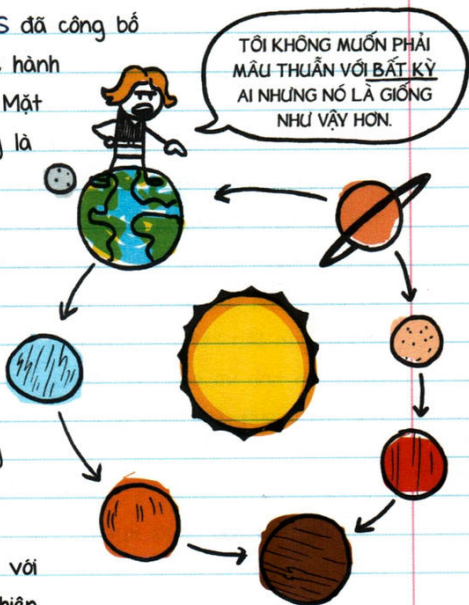 S đã công bố
hành
Mặt
là
TÔI KHÔNG MUỐN PHẢI
MÂU THUẪN VỚI BẤT KỲ
AI NHƯNG NÓ LÀ GIỐNG
NHƯ VẬY HƠN.
với